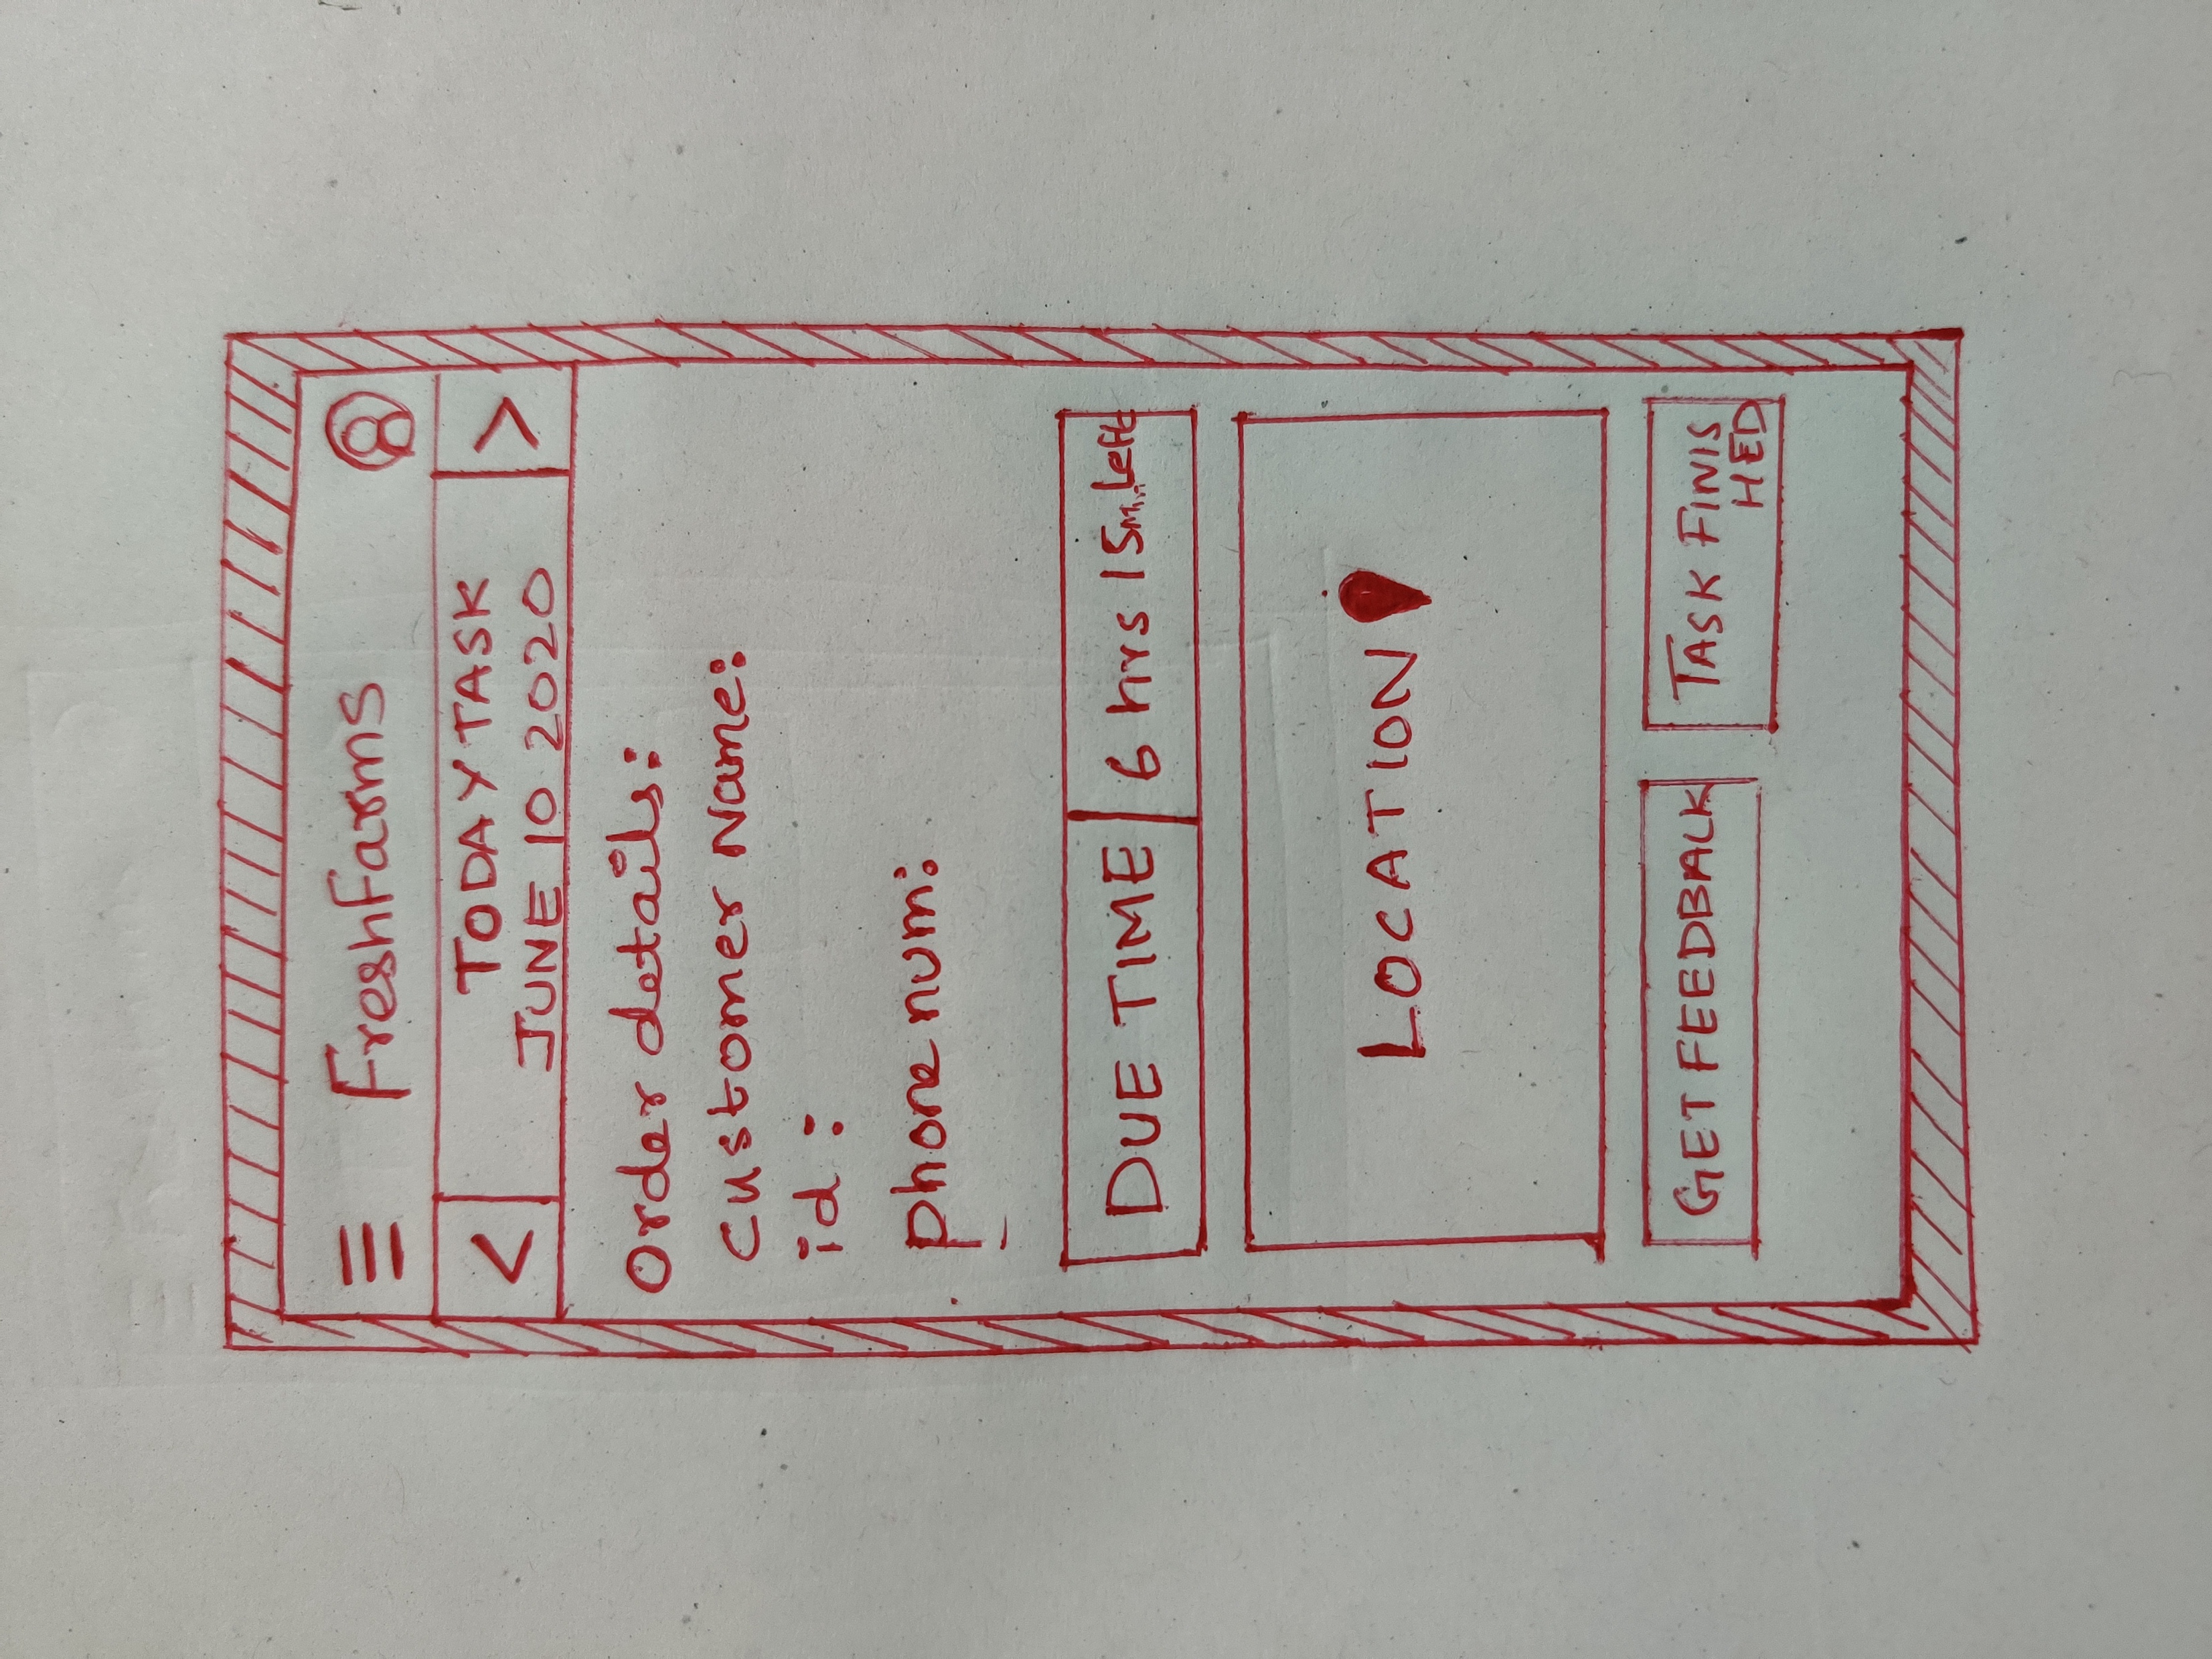 FreshFarms
< TODAY TASK >
JUNE 10 2020
Order details:
Customer Name:
id:
phone num:
DUE TIME 6 hrs 15 min Left
LOCATION
GET FEEDBALK
TASK FINIS
HED